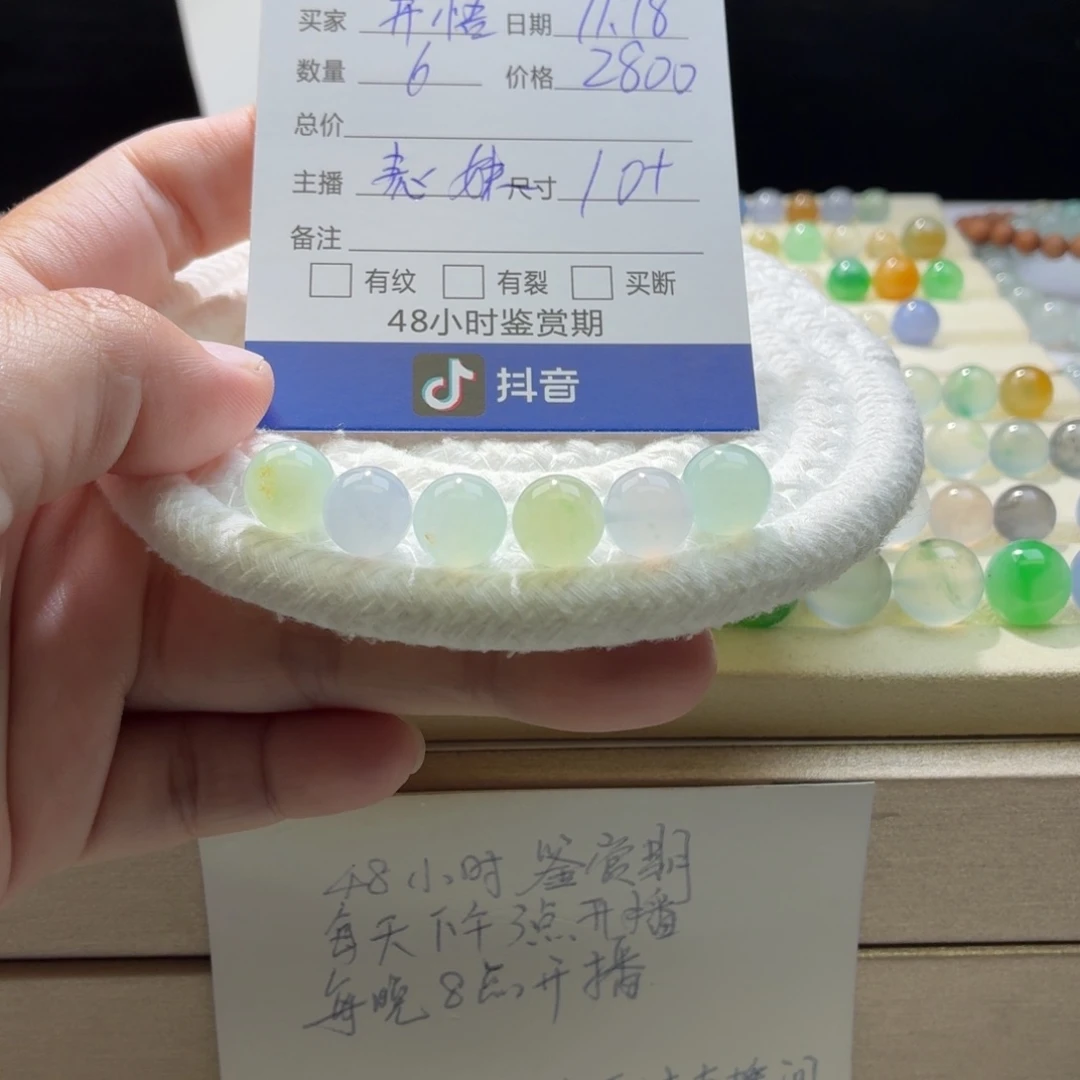 买家 开悟 日期 11.18
数量 6 价格 2800
总价
主播 尺寸 10+
备注
有纹 有裂 买断
48小时鉴赏期
抖音
48小时鉴赏期
每天下午3点开播
每晚8点开播
播间